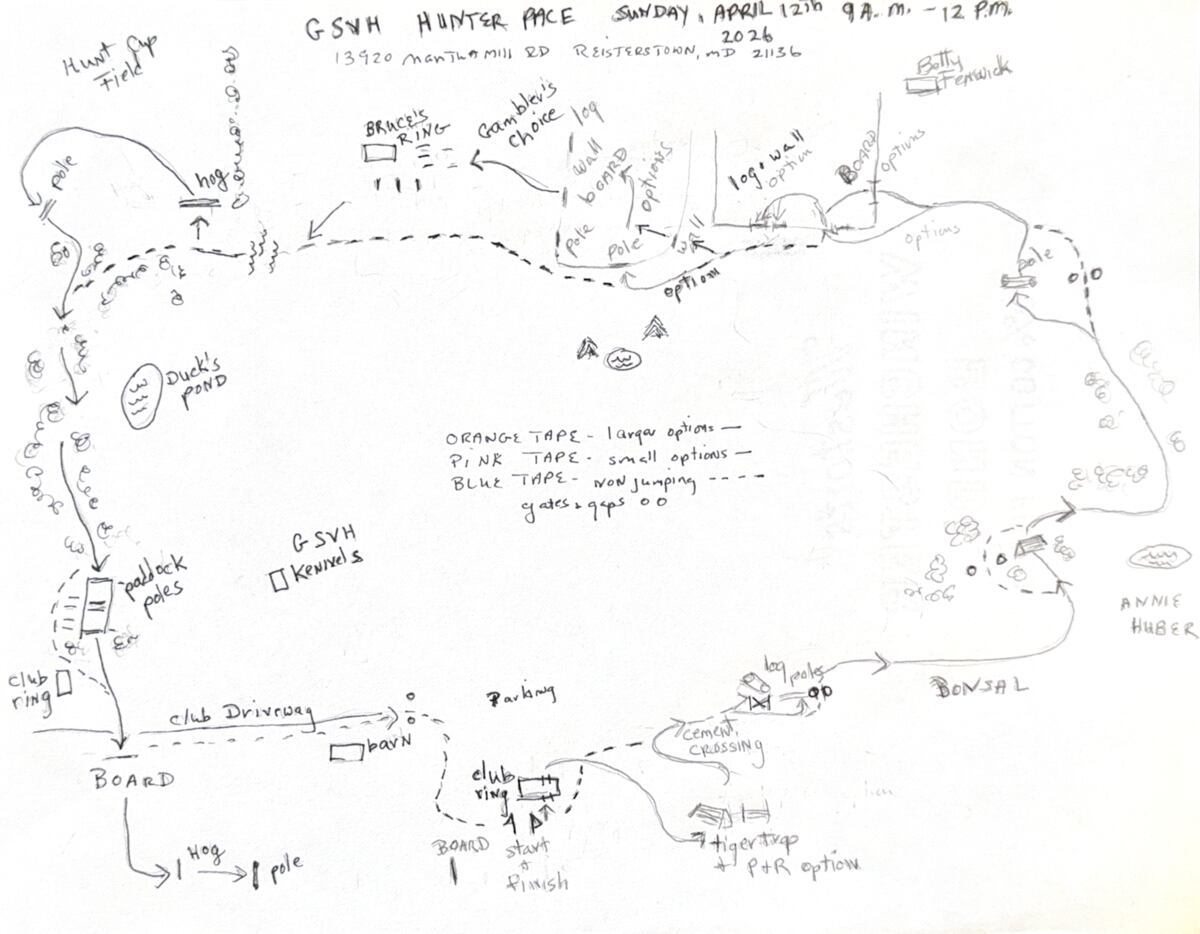 GSVH HUNTER PACE SUNDAY, APRIL 12th 9 A.M. - 12 P.M.
2026
13920 Mantua Mill RD REISTERSTOWN, MD 21136
Hunt Cup
Field
Betty
Fenwick
BRUCE'S
RING
Gambler's
Choice
log
wall
BOARD
pole
options
pole
wall
option
log + wall
option
BOARD
options
options
pole
pole
hog
Duck's
POND
ORANGE TAPE - larger options —
PINK TAPE - small options —
BLUE TAPE - NON jumping ----
gates + gaps o o
GSVH
Kennels
paddock
poles
club
ring
ANNIE
HUBER
BONSAL
log poles
Parking
club Driveway
barn
CEMENT
CROSSING
BOARD
club
ring
BOARD
start
+
finish
tiger trap
+ P+R option
Hog
pole